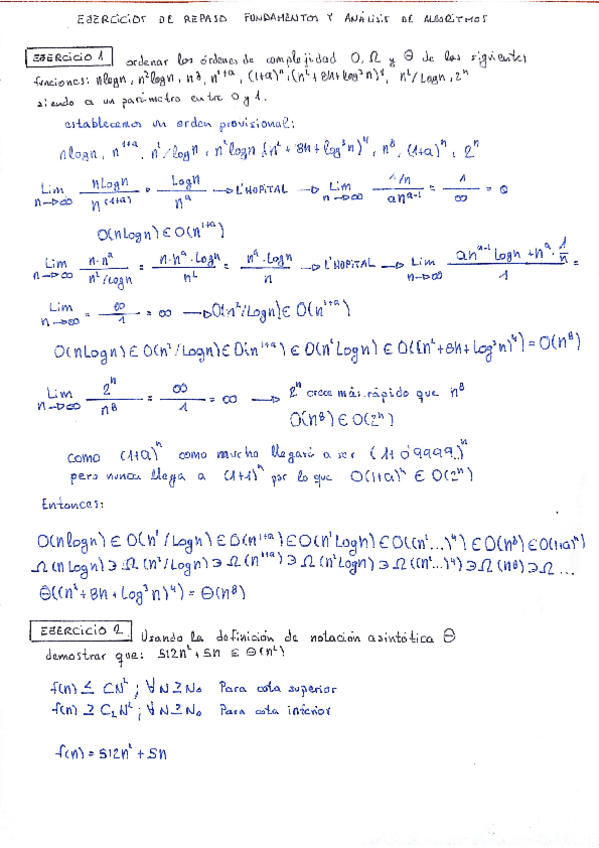 EJERCICIOS DE REPASO FUNDAMENTOS Y ANÁLISIS DE ALGORITMOS
EJERCICIO 1 ordenar los órdenes de complejidad O, Ω y Θ de las siguientes
funciones: nlogn, n²logn, n⁸, n¹⁺ᵃ, (1+a)ⁿ, (n²+8n+log³n)⁴, n²/Logn, 2ⁿ
siendo a un parámetro entre 0 y 1.
establecemos un orden provisional:
nlogn, n¹⁺ᵃ, n²/logn, n²logn, (n²+8n+log³n)⁴, n⁸, (1+a)ⁿ, 2ⁿ
Lim n→∞ nLogn / n^(1+a) = Logn / nᵃ → L'HOPITAL → Lim n→∞ 1/n / anᵃ⁻¹ = 1/∞ = 0
O(nLogn) ∈ O(n¹⁺ᵃ)
Lim n→∞ n·nᵃ / n²/logn = n·nᵃ·Logn / n² = nᵃ·Logn / n → L'HOPITAL → Lim n→∞ anᵃ⁻¹logn + nᵃ·1/n / 1 =
Lim n→∞ = ∞/1 = ∞ → O(n²/Logn) ∈ O(n¹⁺ᵃ)
O(nLogn) ∈ O(n²/Logn) ∈ O(n¹⁺ᵃ) ∈ O(n²Logn) ∈ O((n²+8n+Log³n)⁴) = O(n⁸)
Lim n→∞ 2ⁿ / n⁸ = ∞/1 = ∞ → 2ⁿ crece más rápido que n⁸
O(n⁸) ∈ O(2ⁿ)
como (1+a)ⁿ como mucho llegará a ser (1+0'9999..)ⁿ
pero nunca llega a (1+1)ⁿ por lo que O(1+a)ⁿ ∈ O(2ⁿ)
Entonces:
O(nlogn) ∈ O(n²/Logn) ∈ O(n¹⁺ᵃ) ∈ O(n²Logn) ∈ O((n²...)⁴) ∈ O(n⁸) ∈ O(1+a)ⁿ)
Ω(nLogn) ∋ Ω(n²/Logn) ∋ Ω(n¹⁺ᵃ) ∋ Ω(n²Logn) ∋ Ω((n²...)⁴) ∋ Ω(n⁸) ∋ Ω...
Θ((n²+8n+Log³n)⁴) = Θ(n⁸)
EJERCICIO 2. Usando la definición de notación asintótica Θ
demostrar que: 512n²+5n ∈ Θ(n²)
f(n) ≤ CN²; ∀N≥N₀ Para cota superior
f(n) ≥ C₂N²; ∀N≥N₀ Para cota inferior
f(n) = 512n²+5n